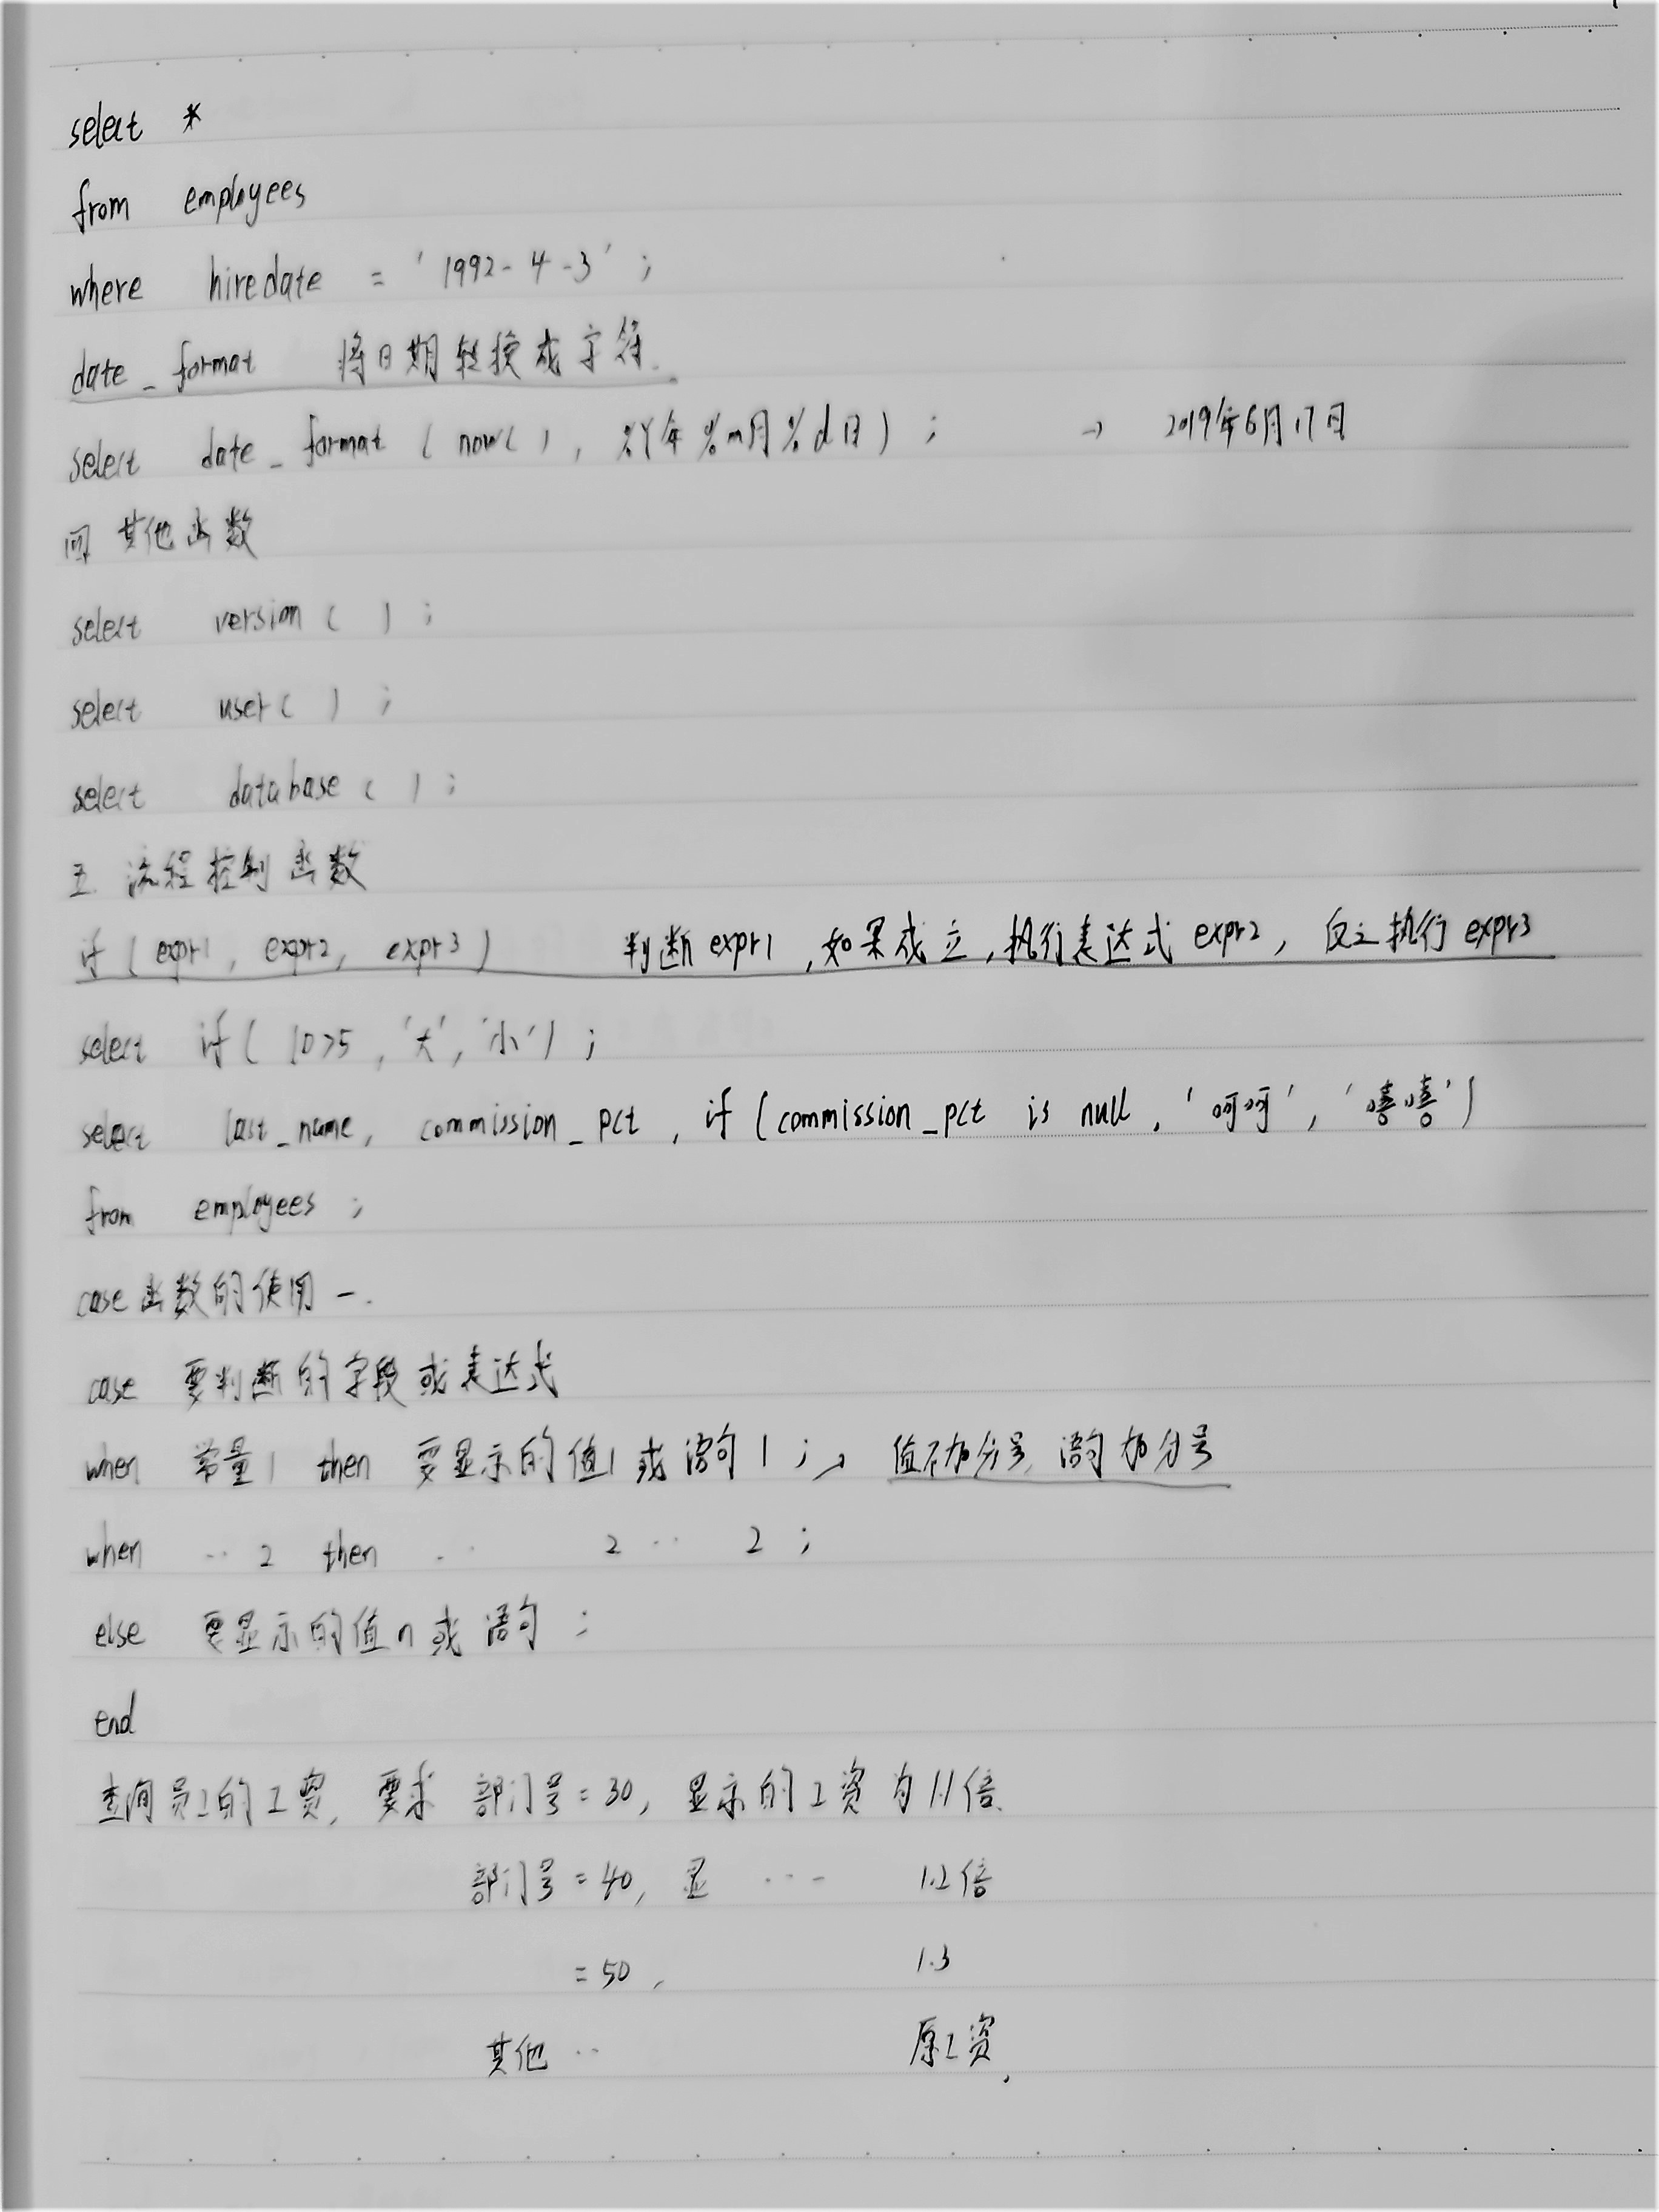 select *
from employees
where hiredate = '1992-4-3' ;
date_format 将日期转换成字符.
select date_format ( now( ) , %Y年%m月%d日 ) ; → 2019年6月17日
四 其他函数
select version ( ) ;
select user ( ) ;
select database ( ) ;
五. 流程控制函数
if ( expr1 , expr2 , expr3 ) 判断 expr1 , 如果成立 , 执行表达式 expr2 , 反之执行 expr3
select if ( 10>5 , '大' , '小' ) ;
select last_name , commission_pct , if ( commission_pct is null , '呵呵' , '嘻嘻' )
from employees ;
case 函数的使用一.
case 要判断的字段或表达式
when 常量1 then 要显示的值1 或语句1 ; → 值不加分号, 语句加分号
when ·· 2 then ·· 2 ·· 2 ;
else 要显示的值n或语句 ;
end
查询员工的工资, 要求 部门号=30, 显示的工资为1.1倍.
部门号=40, 显 ··· 1.2倍
=50 , 1.3
其他 ·· 原工资.